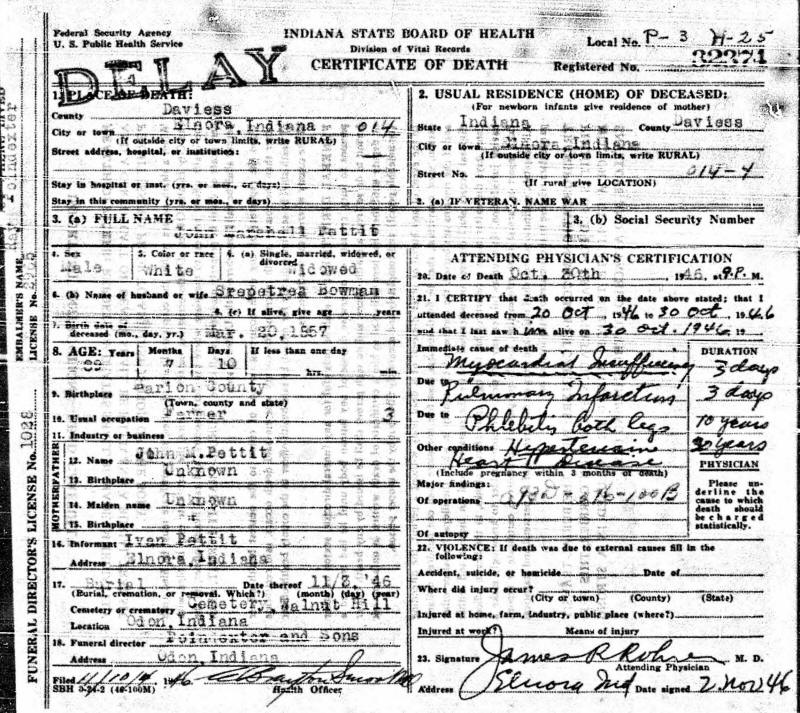 Federal Security Agency
U. S. Public Health Service
INDIANA STATE BOARD OF HEALTH
Division of Vital Records
CERTIFICATE OF DEATH
Local No. P-3 H-25
Registered No. 32371
DELAY
1. PLACE OF DEATH:
County Daviess
City or town Elnora, Indiana 014
(If outside city or town limits, write RURAL)
Street address, hospital, or institution:
Stay in hospital or inst. (yrs. or mos., or days)
Stay in this community (yrs. or mos., or days)
2. USUAL RESIDENCE (HOME) OF DECEASED:
(For newborn infants give residence of mother)
State Indiana County Daviess
City or town Elnora, Indiana
(If outside city or town limits, write RURAL)
Street No. 014-4
(If rural give LOCATION)
2. (a) IF VETERAN, NAME WAR
3. (a) FULL NAME
John Marshall Pettit
3. (b) Social Security Number
4. Sex Male
5. Color or race White
6. (a) Single, married, widowed, or divorced Widowed
6. (b) Name of husband or wife Srepetrea Bowman
6. (c) If alive, give age years
7. Birth date of deceased (mo., day, yr.) Mar. 20, 1857
8. AGE: Years 89 Months 7 Days 10 If less than one day hrs. min.
9. Birthplace Marion County
(Town, county and state)
10. Usual occupation Farmer 3
11. Industry or business
FATHER
12. Name John M. Pettit
13. Birthplace Unknown
MOTHER
14. Maiden name Unknown
15. Birthplace
16. Informant Ivan Pettit
Address Elnora, Indiana
17. Burial Date thereof 11/3/'46
(Burial, cremation, or removal. Which?) (month) (day) (year)
Cemetery or crematory Cemetery, Walnut Hill
Location Odon, Indiana
18. Funeral director Poindexter and Sons
Address Odon, Indiana
Filed 11/10/ 1946
Health Officer
SBH 3-24-2 (46-100M)
ATTENDING PHYSICIAN'S CERTIFICATION
20. Date of Death Oct. 30th 1946, at 9.P. M.
21. I CERTIFY that death occurred on the date above stated; that I
attended deceased from 20 Oct, 1946 to 30 Oct, 1946
and that I last saw him alive on 30 Oct. 1946, 19
Immediate cause of death DURATION
Myocardial Insufficiency 3 days
Due to Pulmonary Infarction 3 days
Due to Phlebitis both legs 10 years
Other conditions Hypertensive 30 years
Heart Disease
(Include pregnancy within 3 months of death)
Major findings:
Of operations 93D - -100B
Of autopsy
PHYSICIAN
Please underline the cause to which death should be charged statistically.
22. VIOLENCE: If death was due to external causes fill in the following:
Accident, suicide, or homicide Date of
Where did injury occur?
(City or town) (County) (State)
Injured at home, farm, industry, public place (where?)
Injured at work? Means of injury
23. Signature James R Rohrer M. D.
Attending Physician
Address Elnora Ind Date signed 2 Nov 46
EMBALMER'S NAME Poindexter
LICENSE No.
FUNERAL DIRECTOR'S LICENSE No. 1028